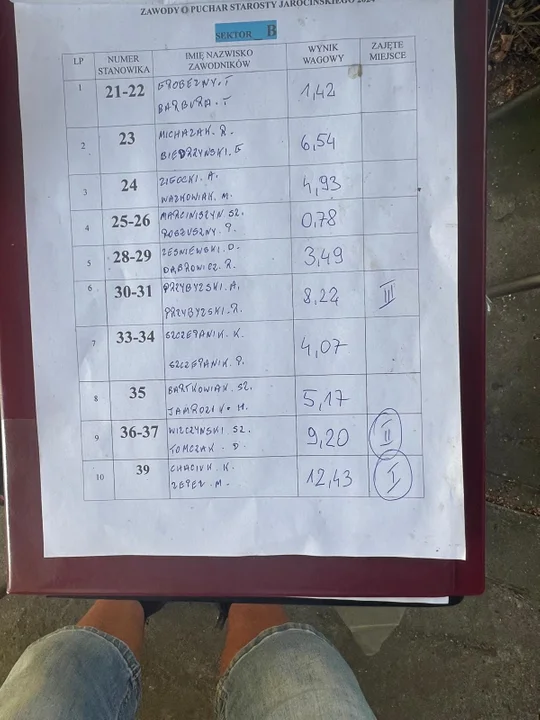 ZAWODY O PUCHAR STAROSTY JAROCIŃSKIEGO 2024
SEKTOR_ B
LP NUMER STANOWIKA IMIĘ NAZWISKO ZAWODNIKÓW WYNIK WAGOWY ZAJĘTE MIEJSCE
1 21-22 GROBERNY. T 1,42
BARBURA. T
2 23 MICHAZAK. R. 6,54
BIEDRZYŃSKI. E
3 24 ZIĘOCKI. A. 4,93
WAZKOWIAK. M.
4 25-26 MARCINISZYN SZ. 0,78
ROBZUSZNY. P.
5 28-29 ZESNIEWSKI. D. 3,49
DĄBROWICZ. R.
6 30-31 PRZYBYZSKI. A. 8,22 III
PRZYBYZSKI. R.
7 33-34 SZCZEPANIK. K. 4,07
SZCZEPANIK. P.
8 35 BARTKOWIAK. SZ. 5,17
JAMROZIK. H.
9 36-37 WIZCZYNSKI SZ. 9,20 II
TOMCZAK. D
10 39 K. 12,43 I
M.